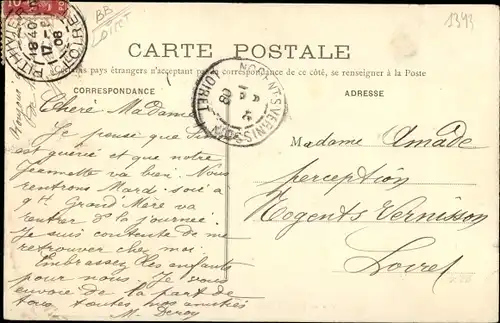 BB
Loiret
1343
PITHIVIERS
LOIRET
18 40
17 -8
08
CARTE POSTALE
pays étrangers n'acceptant pas correspondance de ce côté, se renseigner à la Poste
CORRESPONDANCE
ADRESSE
NOGENT S VERNISSON
LOIRET
08
Chère Madame
Je pense que
est guérie et que notre
Jeannette va bien. Nous
rentrons Mardi soir à
9h Grand'Mère va
rentrer ds la journée.
Je suis contente de me
retrouver chez moi.
Embrassez les enfants
pour nous. Je vous
envoie de la part de
tous toutes nos amitiés
M. Deroy
Madame Amade
perception
Nogent s Vernisson
Loiret